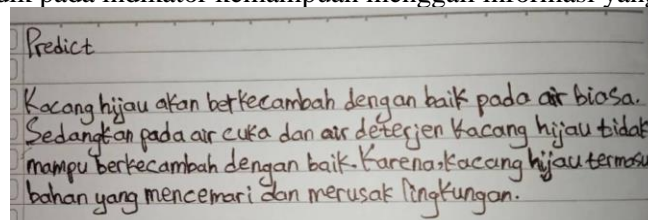 pada indikator kemampuan menggali informasi yang
Predict
Kacang hijau akan berkecambah dengan baik pada air biasa.
Sedangkan pada air cuka dan air deterjen kacang hijau tidak
mampu berkecambah dengan baik. Karena, kacang hijau termasu
bahan yang mencemari dan merusak lingkungan.